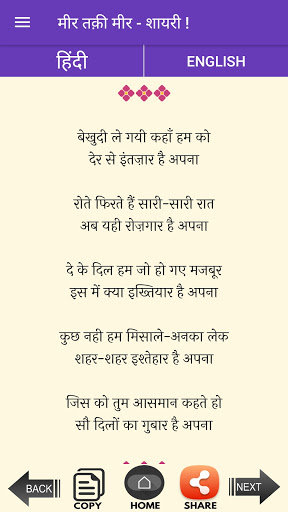 मीर तक़ी मीर - शायरी !
हिंदी
ENGLISH
बेखुदी ले गयी कहाँ हम को
देर से इंतज़ार है अपना
रोते फिरते हैं सारी-सारी रात
अब यही रोज़गार है अपना
दे के दिल हम जो हो गए मजबूर
इस में क्या इख्तियार है अपना
कुछ नही हम मिसाले-अनका लेक
शहर-शहर इश्तेहार है अपना
जिस को तुम आसमान कहते हो
सौ दिलों का गुबार है अपना
BACK
COPY
HOME
SHARE
NEXT